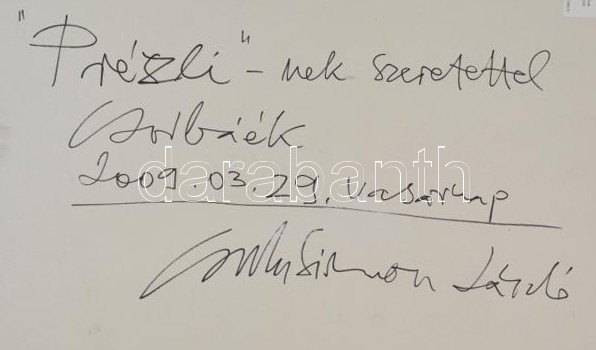 "Prézli"-nek szeretettel
Csorbáék
2009.03.29. vasárnap
Csorba Simon László
darabanth